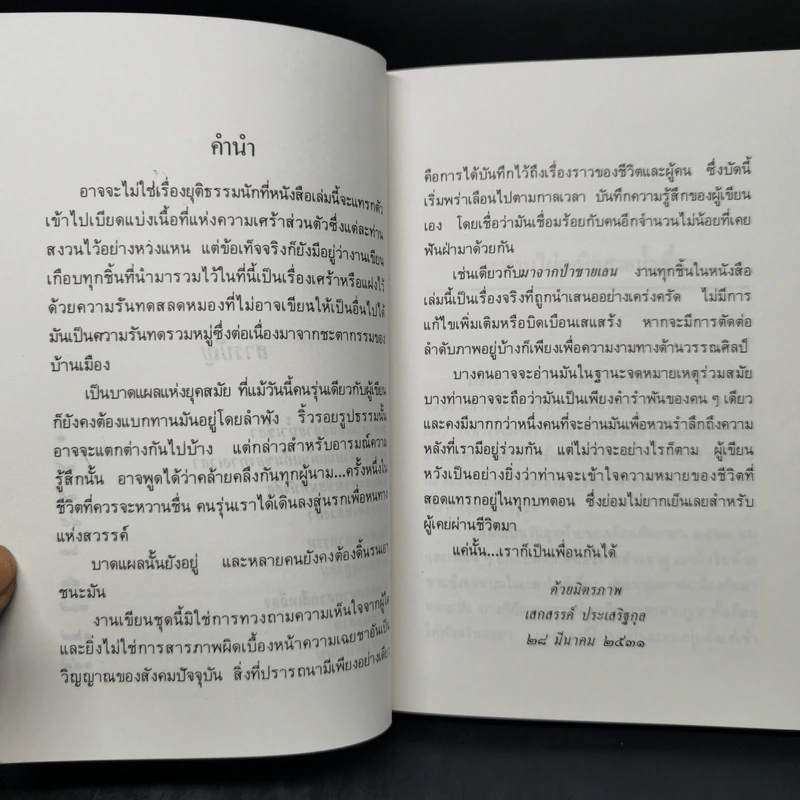 คำนำ
อาจจะไม่ใช่เรื่องยุติธรรมนักที่หนังสือเล่มนี้จะแทรกตัว
เข้าไปเบียดแบ่งเนื้อที่แห่งความเศร้าส่วนตัวซึ่งแต่ละท่าน
สงวนไว้อย่างหวงแหน แต่ข้อเท็จจริงก็ยังมีอยู่ว่างานเขียน
เกือบทุกชิ้นที่นำมารวมไว้ในที่นี้เป็นเรื่องเศร้าหรือแฝงไว้
ด้วยความรันทดสลดหมองที่ไม่อาจเขียนให้เป็นอื่นไปได้
มันเป็นความรันทดรวมหมู่ซึ่งต่อเนื่องมาจากชะตากรรมของ
บ้านเมือง
เป็นบาดแผลแห่งยุคสมัย ที่แม้วันนี้คนรุ่นเดียวกับผู้เขียน
ก็ยังคงต้องแบกทานมันอยู่โดยลำพัง ริ้วรอยรูปธรรมนั้น
อาจจะแตกต่างกันไปบ้าง แต่กล่าวสำหรับอารมณ์ความ
รู้สึกนั้น อาจพูดได้ว่าคล้ายคลึงกันทุกผู้นาม...ครั้งหนึ่งใน
ชีวิตที่ควรจะหวานชื่น คนรุ่นเราได้เดินลงสู่นรกเพื่อหนทาง
แห่งสวรรค์
บาดแผลนั้นยังอยู่ และหลายคนยังคงต้องดิ้นรนเอา
ชนะมัน
งานเขียนชุดนี้มิใช่การทวงถามความเห็นใจจากผู้ใด
และยิ่งไม่ใช่การสารภาพผิดเบื้องหน้าความเฉยชาอันเป็น
วิญญาณของสังคมปัจจุบัน สิ่งที่ปรารถนามีเพียงอย่างเดียว
คือการได้บันทึกไว้ถึงเรื่องราวของชีวิตและผู้คน ซึ่งบัดนี้
เริ่มพร่าเลือนไปตามกาลเวลา บันทึกความรู้สึกของผู้เขียน
เอง โดยเชื่อว่ามันเชื่อมร้อยกับคนอีกจำนวนไม่น้อยที่เคย
ฟันฝ่ามาด้วยกัน
เช่นเดียวกับมาจากป่าชายเลน งานทุกชิ้นในหนังสือ
เล่มนี้เป็นเรื่องจริงที่ถูกนำเสนออย่างเคร่งครัด ไม่มีการ
แก้ไขเพิ่มเติมหรือบิดเบือนเสแสร้ง หากจะมีการตัดต่อ
ลำดับภาพอยู่บ้างก็เพียงเพื่อความงามทางด้านวรรณศิลป์
บางคนอาจจะอ่านมันในฐานะจดหมายเหตุร่วมสมัย
บางท่านอาจจะถือว่ามันเป็นเพียงคำรำพันของคน ๆ เดียว
และคงมีมากกว่าหนึ่งคนที่จะอ่านมันเพื่อหวนรำลึกถึงความ
หลังที่เรามีอยู่ร่วมกัน แต่ไม่ว่าจะอย่างไรก็ตาม ผู้เขียน
หวังเป็นอย่างยิ่งว่าท่านจะเข้าใจความหมายของชีวิตที่
สอดแทรกอยู่ในทุกบทตอน ซึ่งย่อมไม่ยากเย็นเลยสำหรับ
ผู้เคยผ่านชีวิตมา
แค่นั้น...เราก็เป็นเพื่อนกันได้
ด้วยมิตรภาพ
เสกสรรค์ ประเสริฐกุล
๒๘ มีนาคม ๒๕๓๑